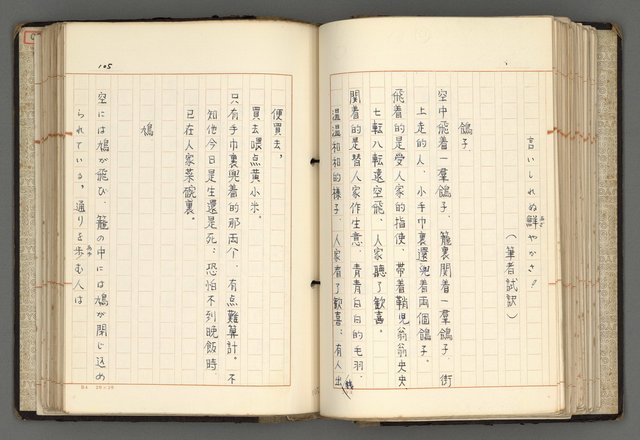 言いしれぬ鮮やかさ！
あざ
（筆者試訳）
鴿子
空中飛着一羣鴿子、籠裏関着一羣鴿子、街
上走的人、小手巾裏還兜着両個鴿子。
飛着的是受人家的指使、帯着鞘児翁翁央央
七転八転遶空飛、人家聴了歓喜。
関着的是替人家作生意、青青白白的毛羽、
温温和和的様子、人家看了歓喜；有人出
銭
便買去，
買去喂点黄小米。
只有手巾裏兜着的那両个、有点難算計。不
知他今日是生還是死；恐怕不到晩飯時
已在人家菜碗裏。
鳩
空には鳩が飛び、籠の中には鳩が閉じ込め
られている、通りを歩む人は
あゆ
105
B4 20×20